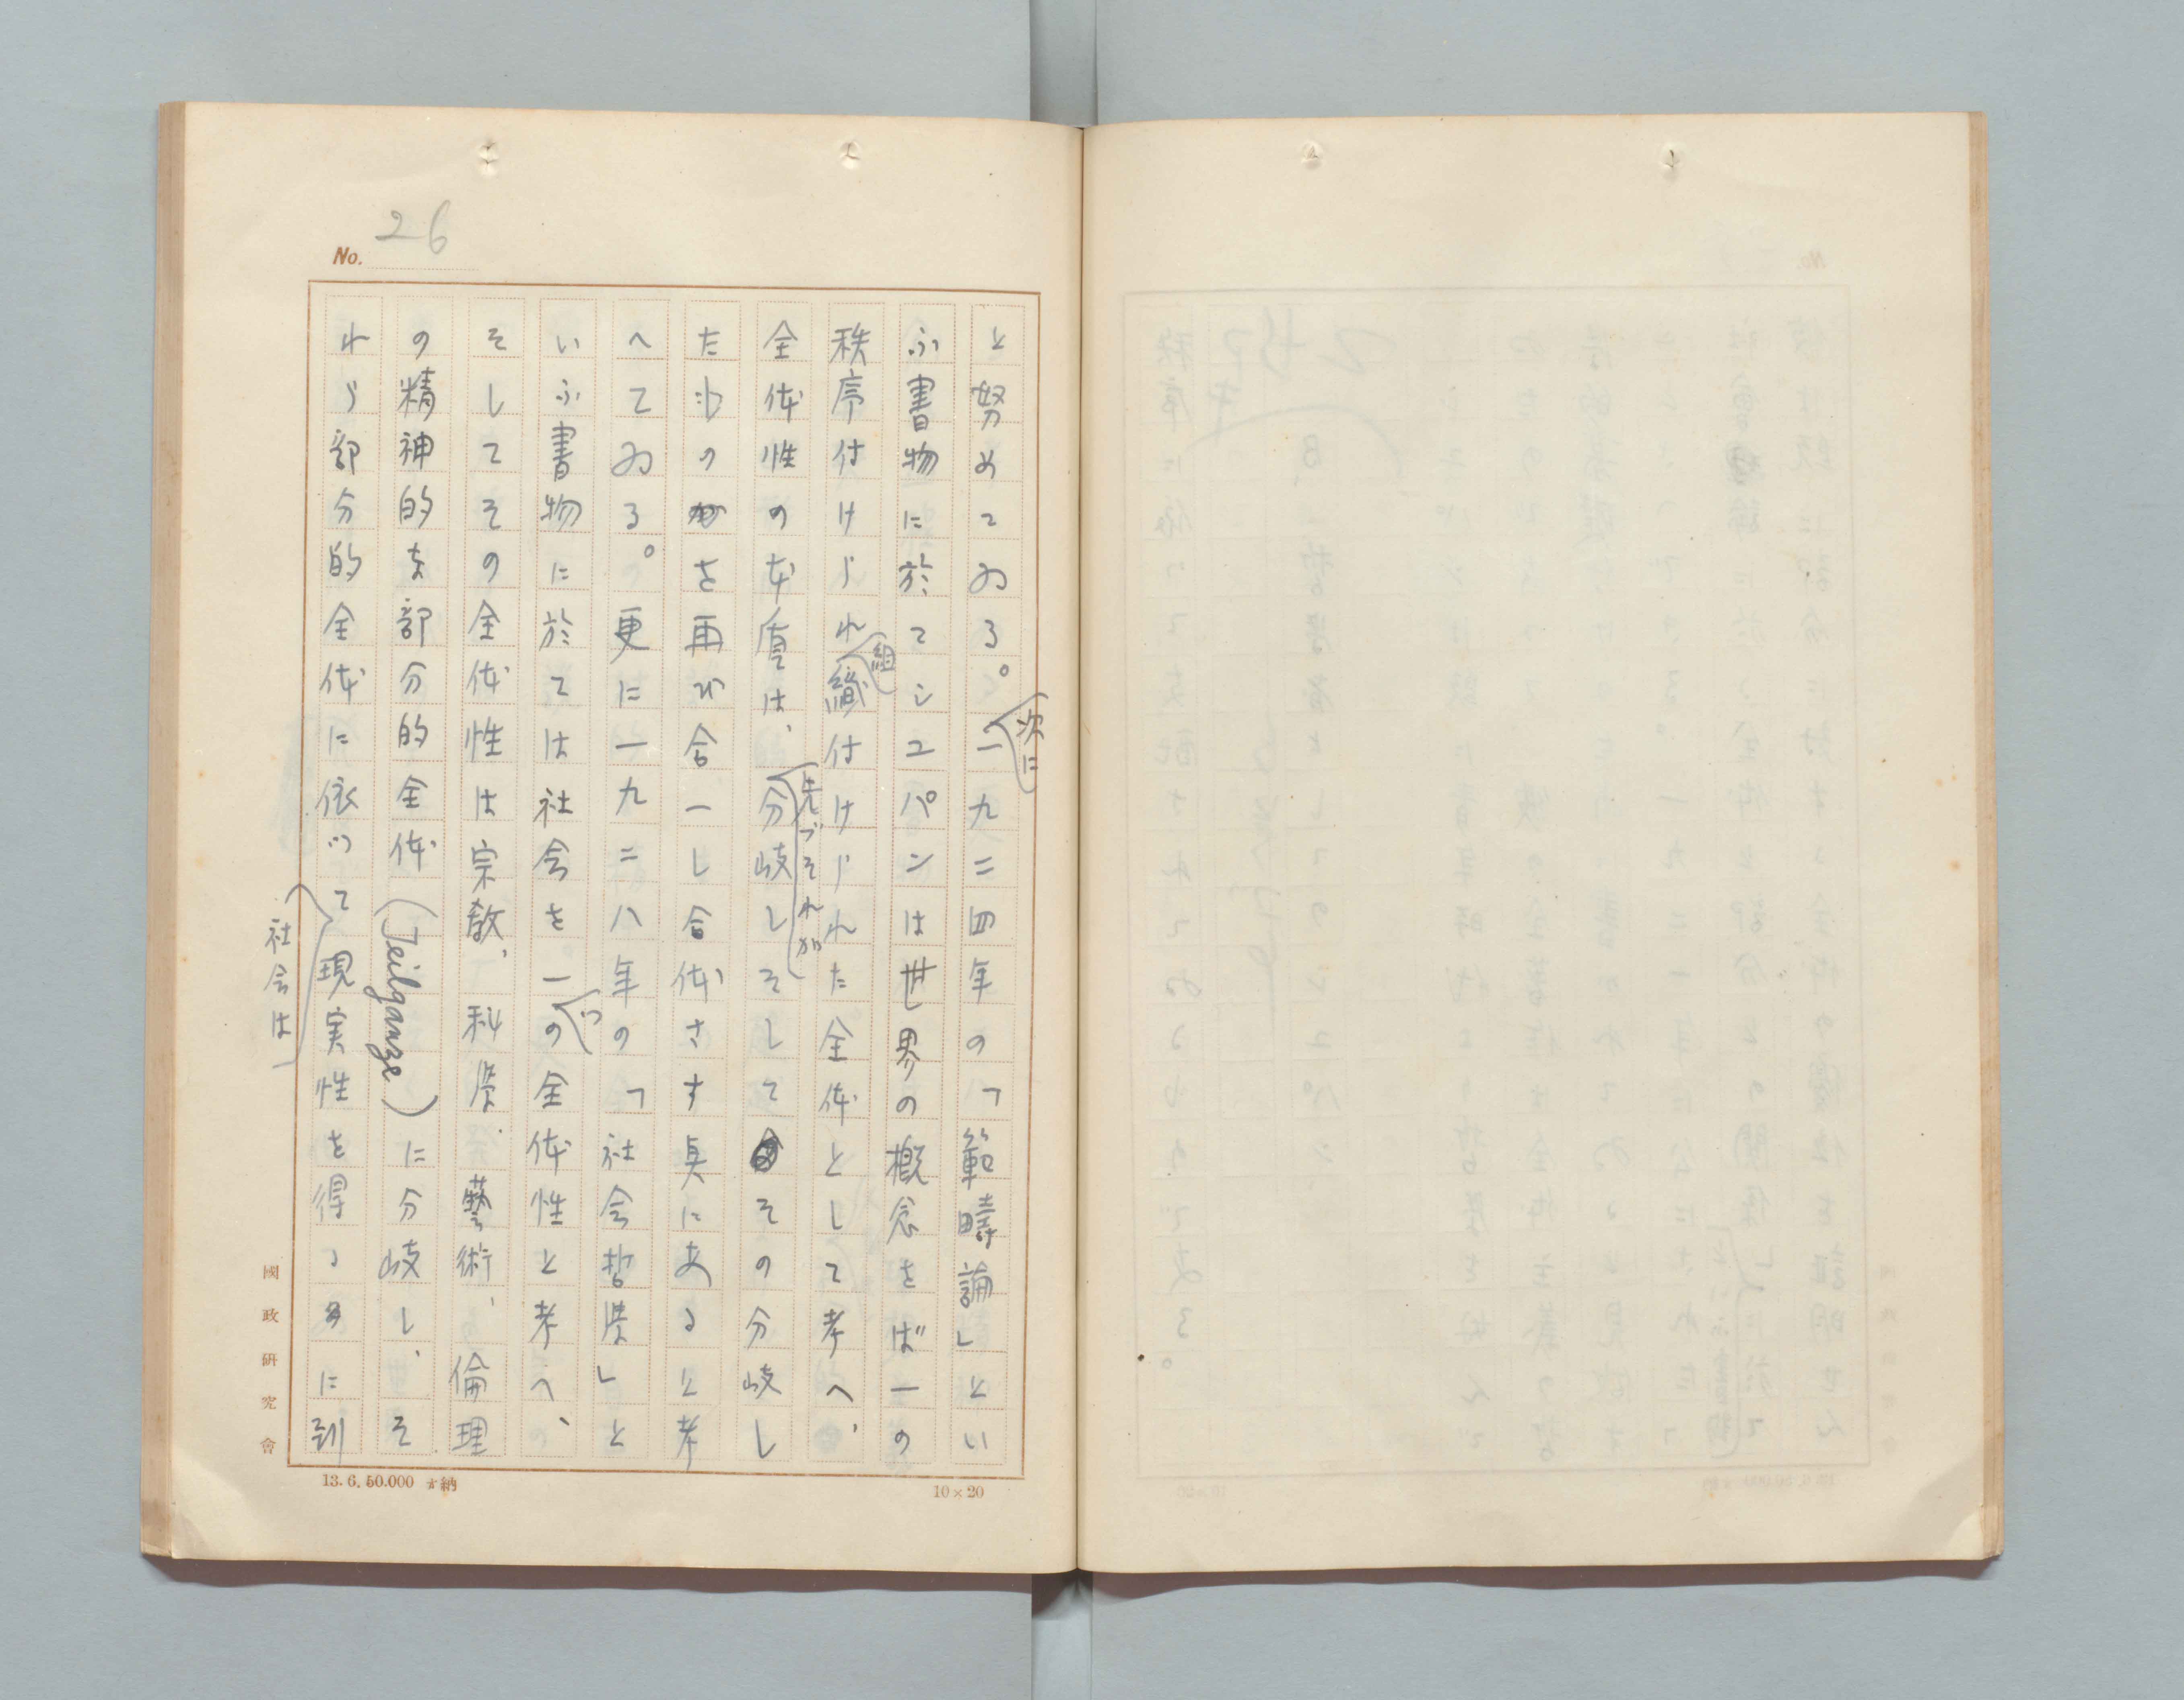 No. 26
と努めてゐる。次に一九二四年の「範疇論」とい
ふ書物に於てシユパンは世界の概念をば一の
秩序付けられ組織付けられた全体として考へ、
全体性の本質は、先づそれが分岐しそしてその分岐し
たものを再び合一し合体さす真にあると考
へてゐる。更に一九二八年の「社会哲学」と
いふ書物に於ては社会を一つの全体性と考へ、
そしてその全体性は宗教、科学、藝術、倫理
の精神的な部分的全体(Teilganze)に分岐し、そ
れら部分的全体に依つて社会は現実性を得るに到
國政研究會
13.6.50.000 納
10×20